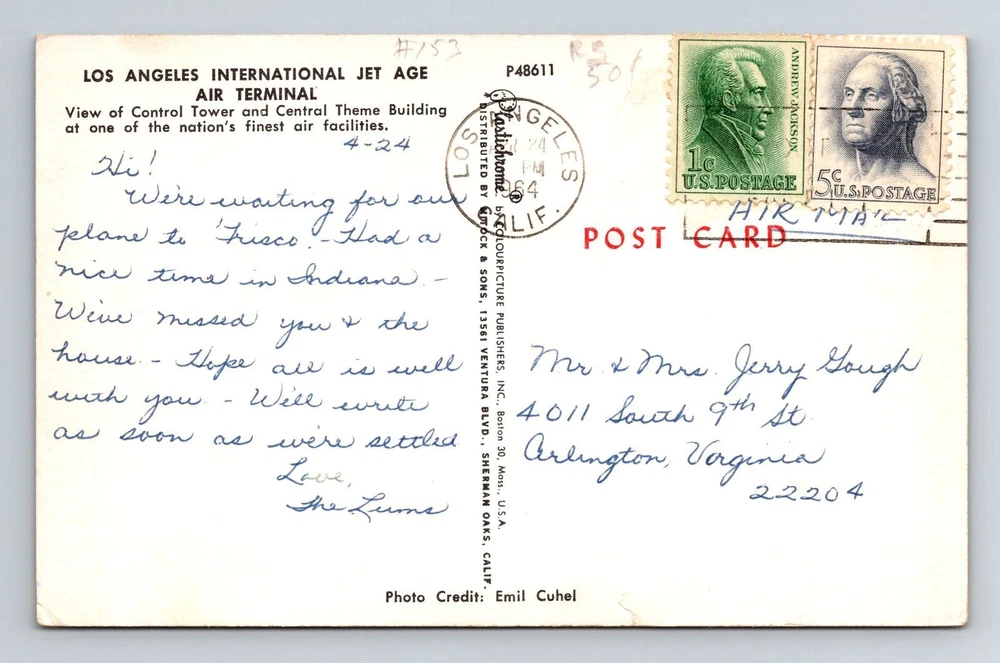 #153
R3
50¢
LOS ANGELES INTERNATIONAL JET AGE
AIR TERMINAL
View of Control Tower and Central Theme Building
at one of the nation's finest air facilities.
P48611
4-24
Hi!
We're waiting for our
plane to 'Frisco. - Had a
nice time in Indiana. -
We've missed you & the
house. - Hope all is well
with you. - We'll write
as soon as we're settled
Love,
The Lums
LOS ANGELES
24
PM
1964
CALIF.
Plastichrome®
by COLOURPICTURE PUBLISHERS, INC., Boston 30, Mass., U.S.A.
DISTRIBUTED BY MITOCK & SONS, 13561 VENTURA BLVD., SHERMAN OAKS, CALIF.
ANDREW JACKSON
1c
U.S. POSTAGE
5c
U.S. POSTAGE
AIR MAIL
POST CARD
Mr. & Mrs. Jerry Gough
4011 South 9th St.
Arlington, Virginia
22204
Photo Credit: Emil Cuhel